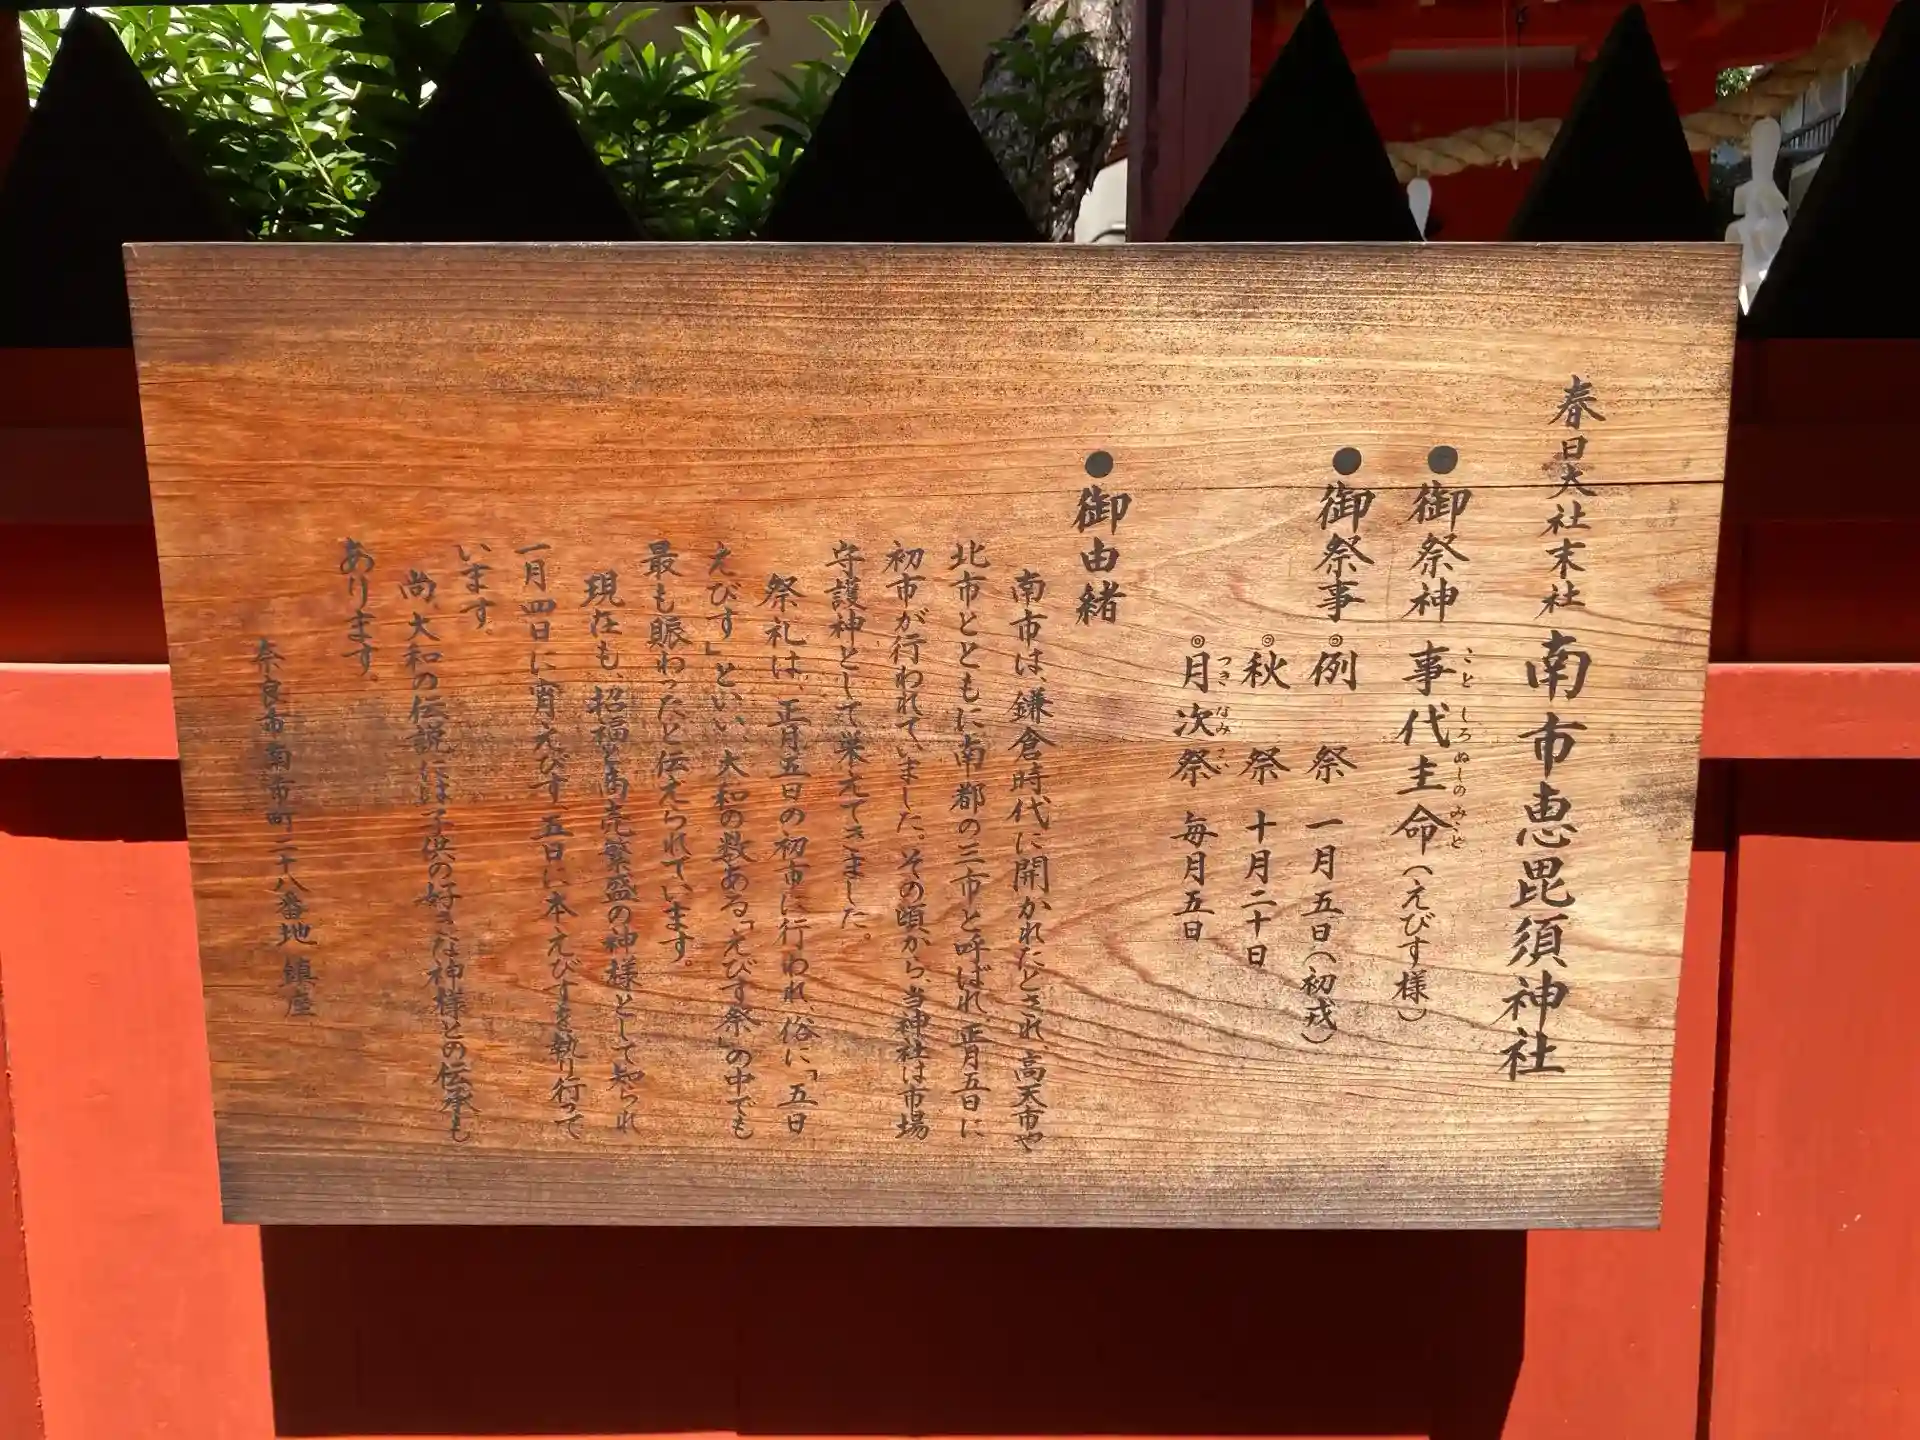 春日大社末社 南市恵毘須神社
●御祭神 事代主命(えびす様)
ことしろぬしのみこと
●御祭事 ◎例祭 一月五日(初戎)
◎秋祭 十月二十日
◎月次祭 毎月五日
つきなみさい
●御由緒
南市は、鎌倉時代に開かれたとされ、高天市や
北市とともに南都の三市と呼ばれ、正月五日に
初市が行われていました。その頃から、当神社は市場
守護神として栄えてきました。
祭礼は、正月五日の初市に行われ、俗に「五日
えびす」といい、大和の数ある「えびす祭」の中でも
最も賑わったと伝えられています。
現在も、招福と商売繁盛の神様として知られ
一月四日に宵えびす、五日に本えびすを執り行って
います。
尚、大和の伝説には子供の好きな神様との伝承も
あります。
奈良市南市町二十八番地 鎮座